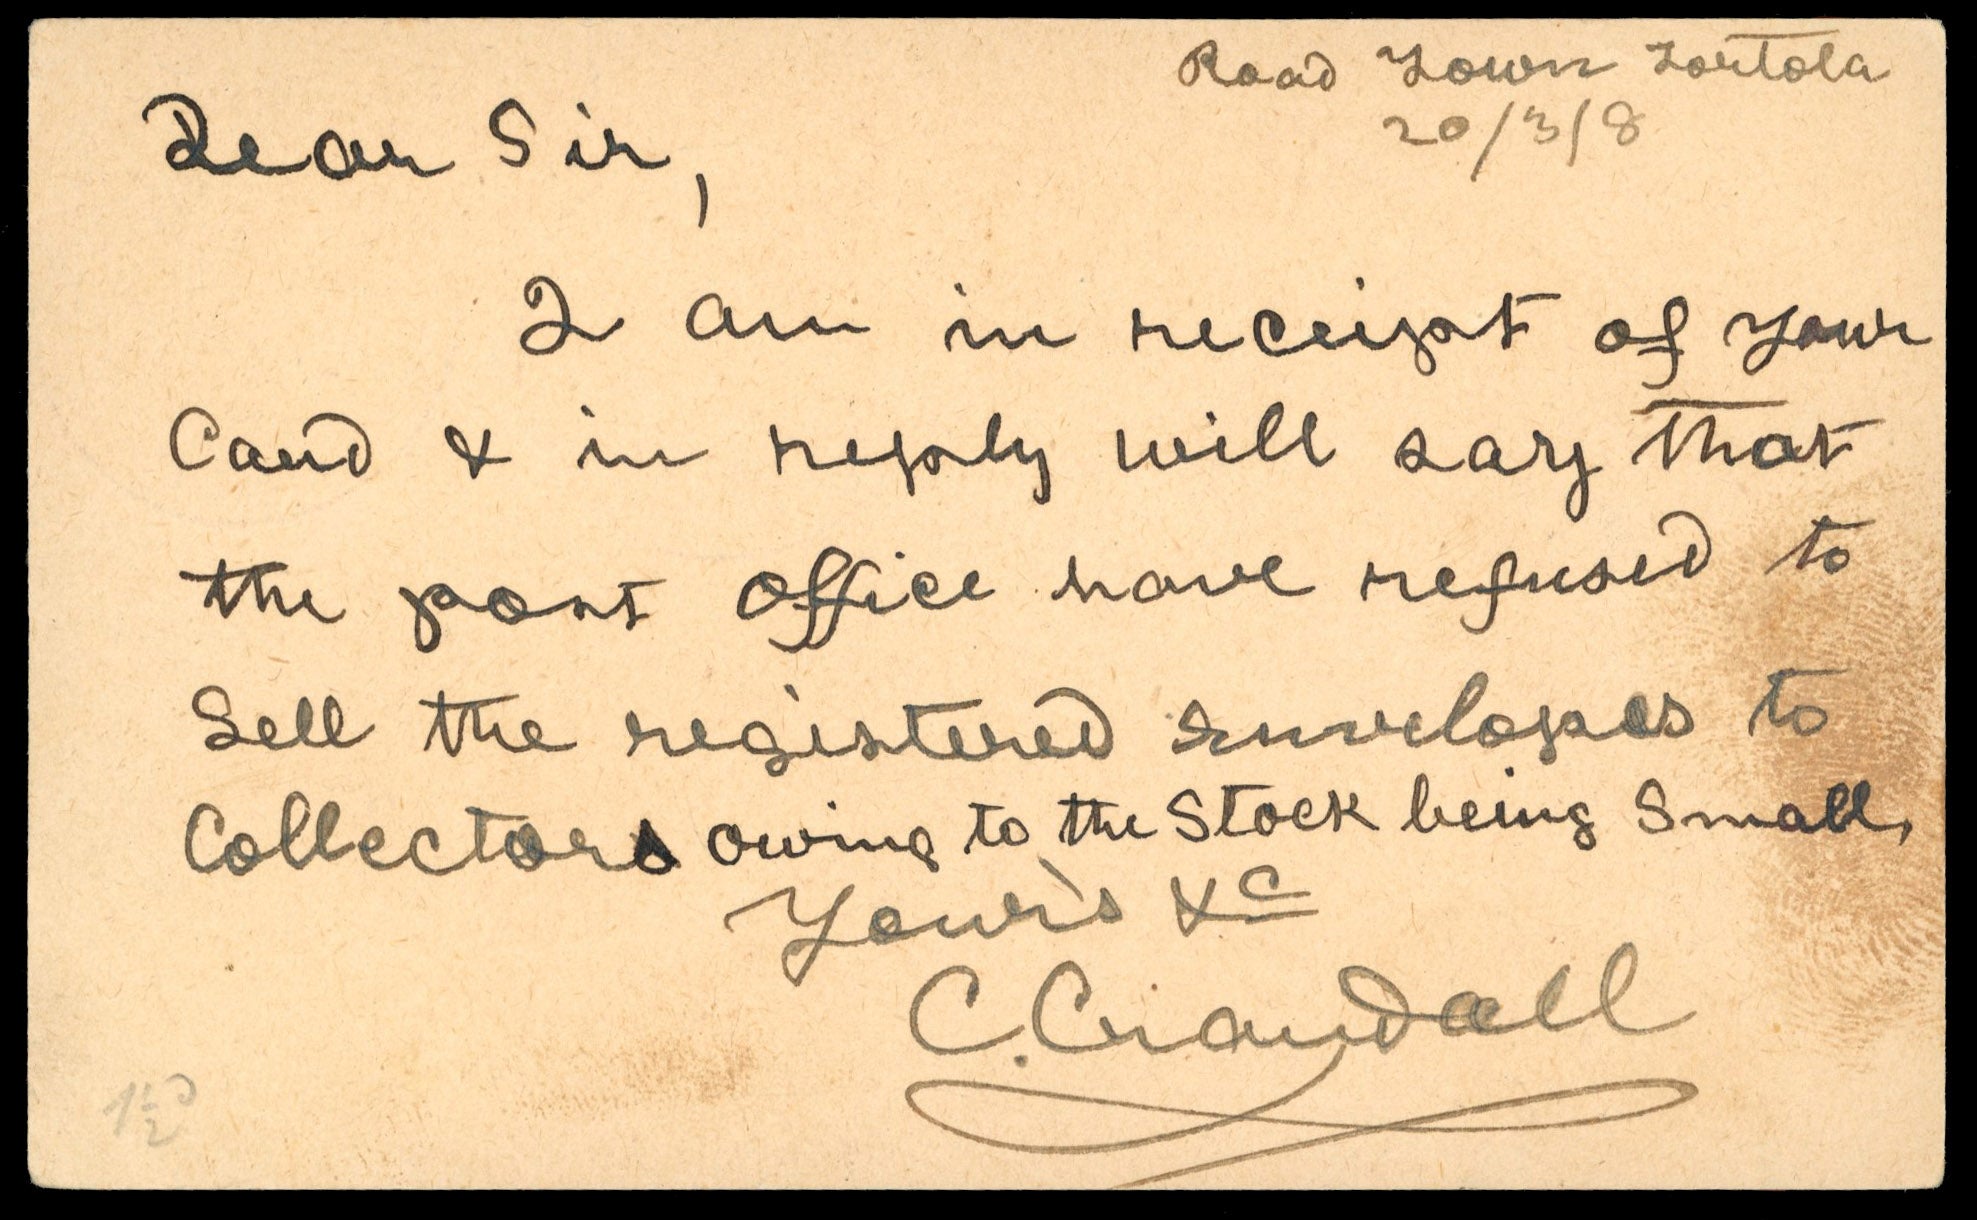 Road Town Tortola
20/3/8
Dear Sir,
I am in receipt of your
Card & in reply will say that
the post office have refused to
Sell the registered envelopes to
Collectors owing to the Stock being Small,
Your's &c
C. Crandall
1½d